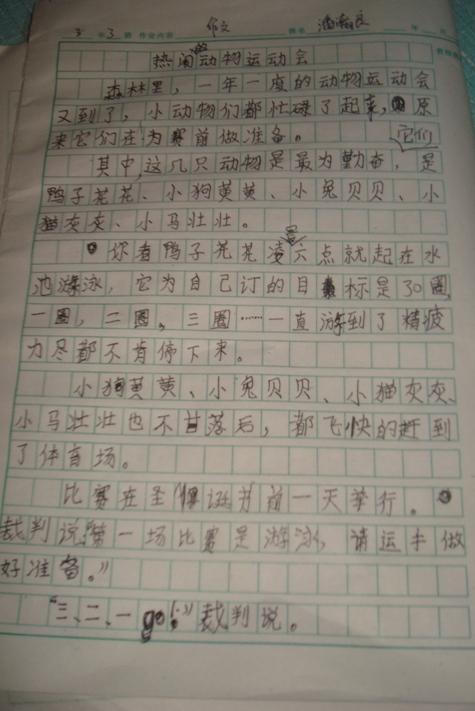 3 年 3 班 作业内容 作文 姓名 年
热闹的动物运动会
森林里，一年一度的动物运动会
又到了，小动物们都忙碌了起来，原
来它们在为赛前做准备。
其中，这几只动物是最为勤奋，它们是
鸭子花花、小狗黄黄、小兔贝贝、小
猫灰灰、小马壮壮。
你看鸭子花花凌晨六点就起在水
池游泳，它为自己订的目标是30圈，
一圈，二圈，三圈……一直游到了精疲
力尽都不肯停下来。
小狗黄黄、小兔贝贝、小猫灰灰、
小马壮壮也不甘落后，都飞快的赶到
了体育场。
比赛在圣诞节前一天举行。
裁判说：“第一场比赛是游泳，请运手做
好准备。”
“三、二、一go！”裁判说。